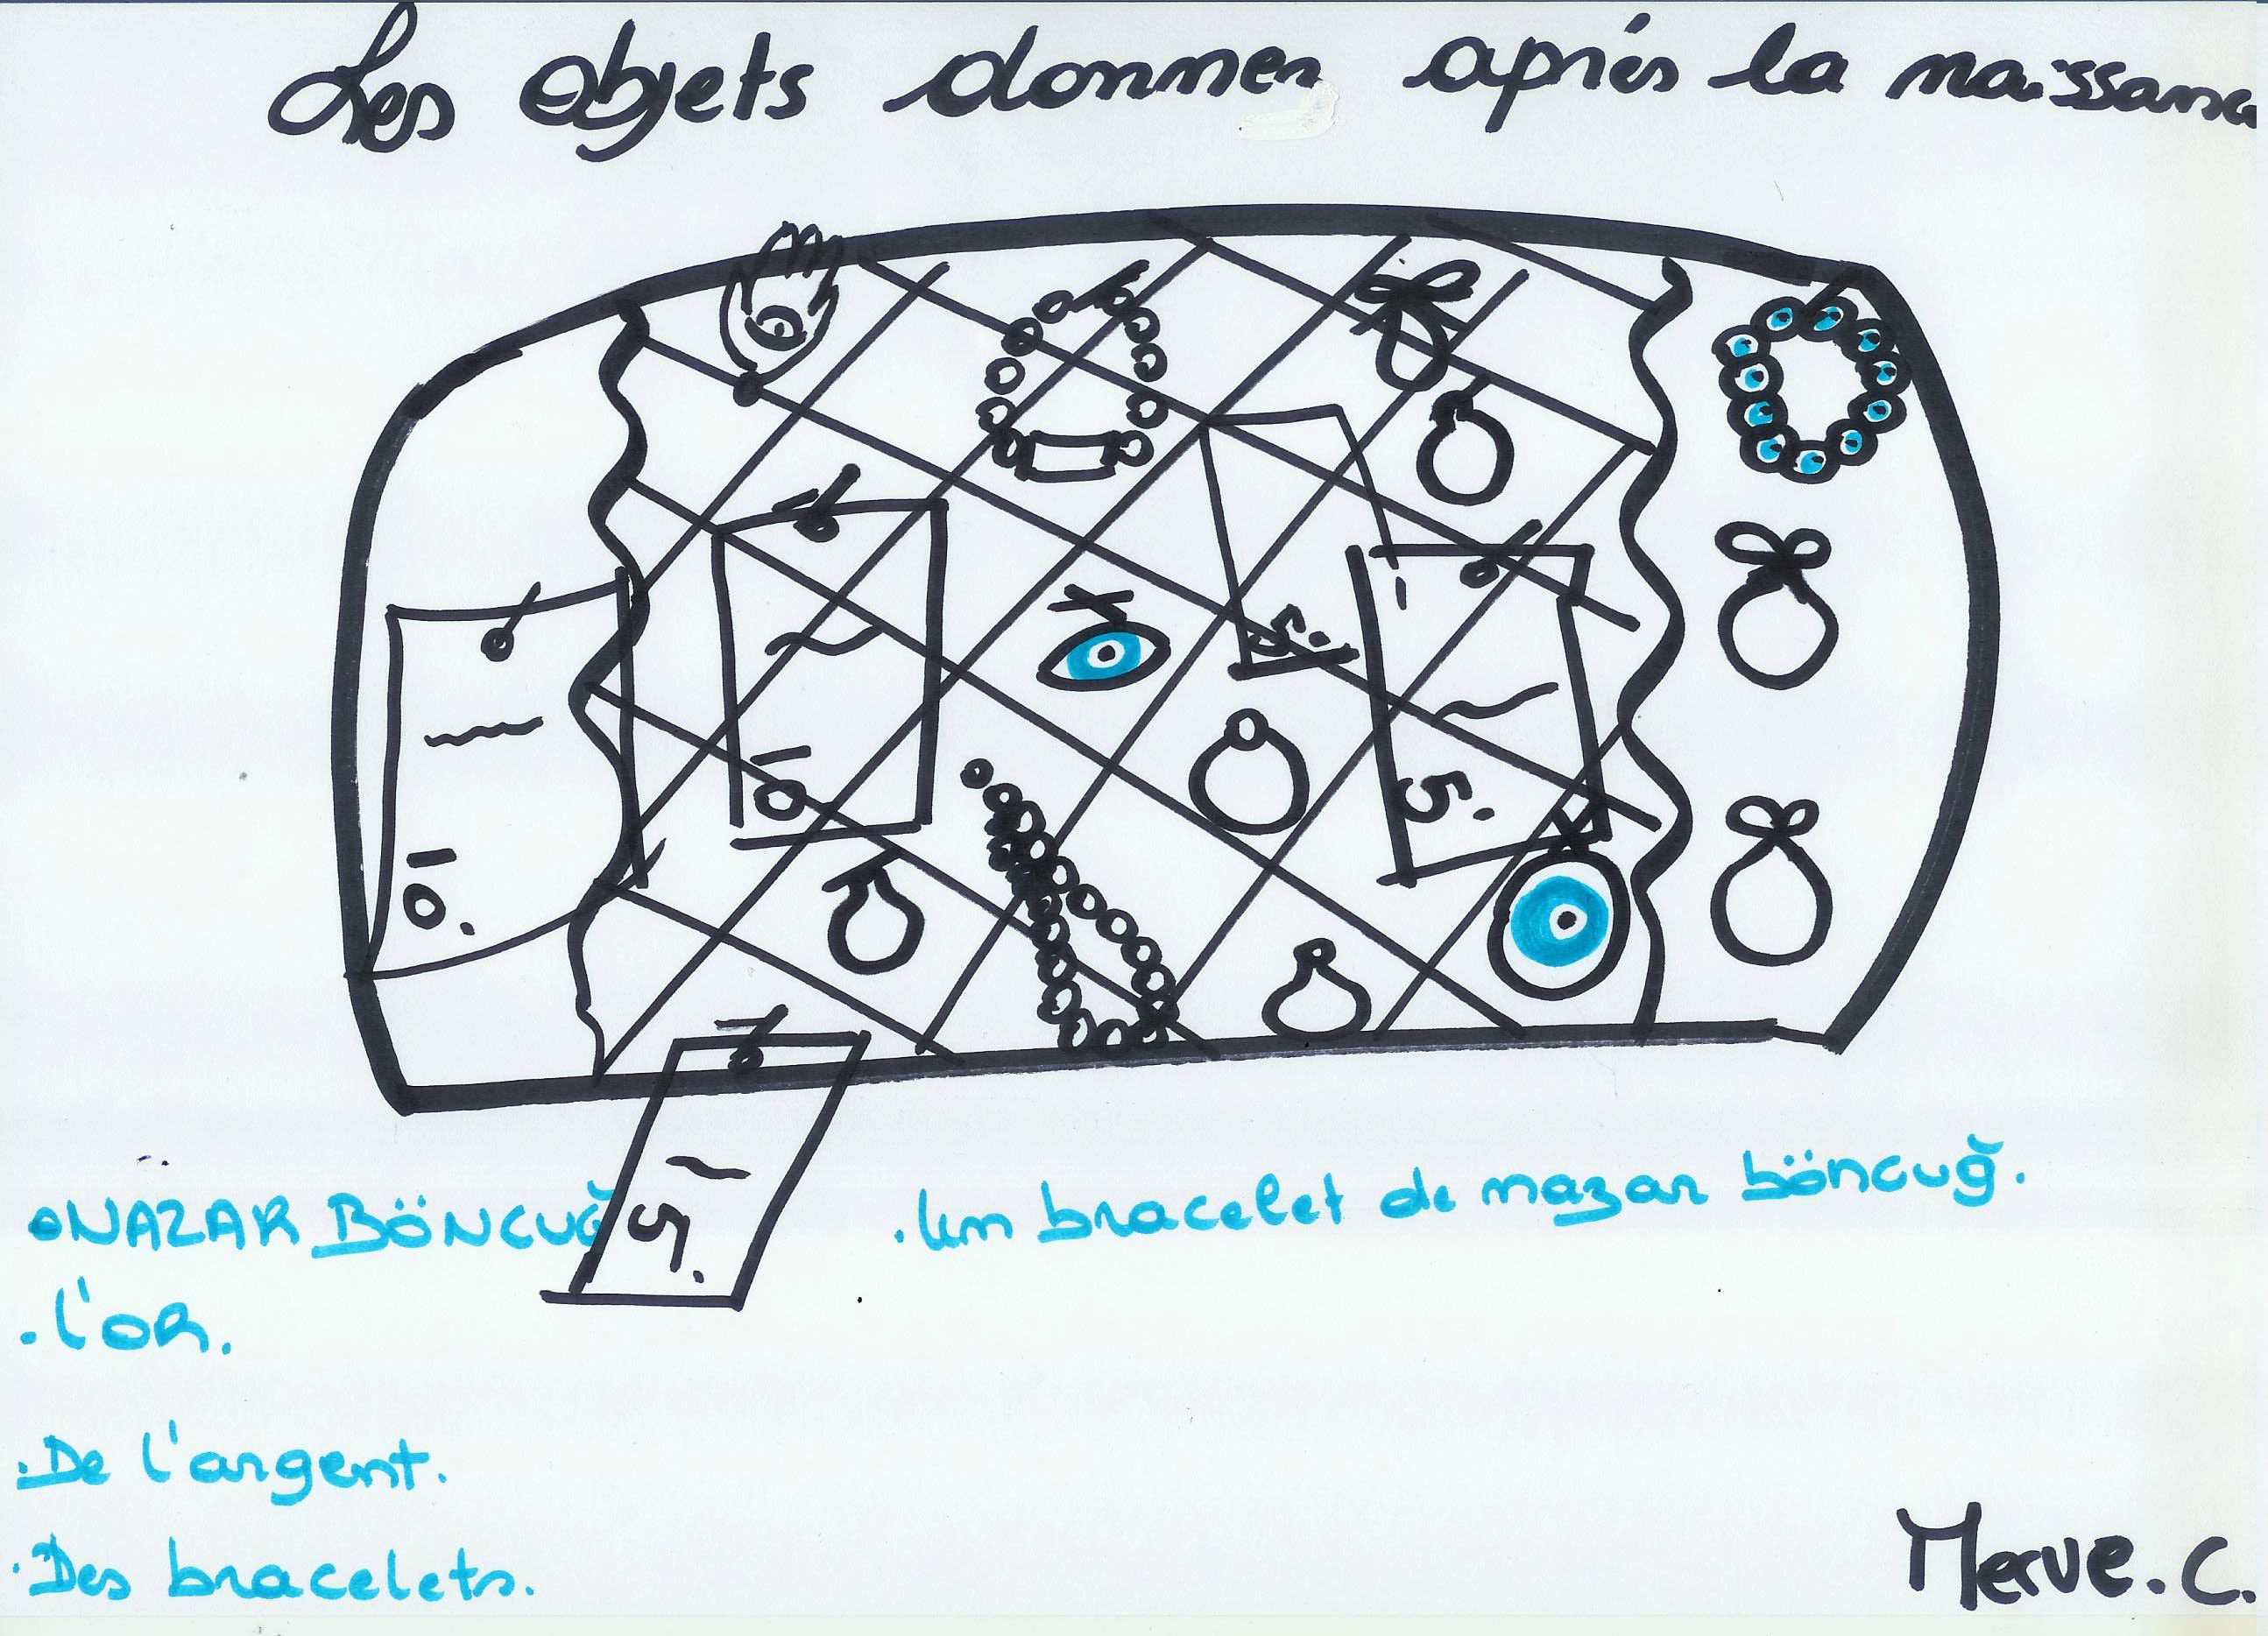 Les objets donner aprés la naissance
10.
10
5.
5.
5.
•NAZAR BÖNCUĞ
.Un bracelet de nazar böncuğ.
.l'or.
.De l'argent.
.Des bracelets.
Merve.C.